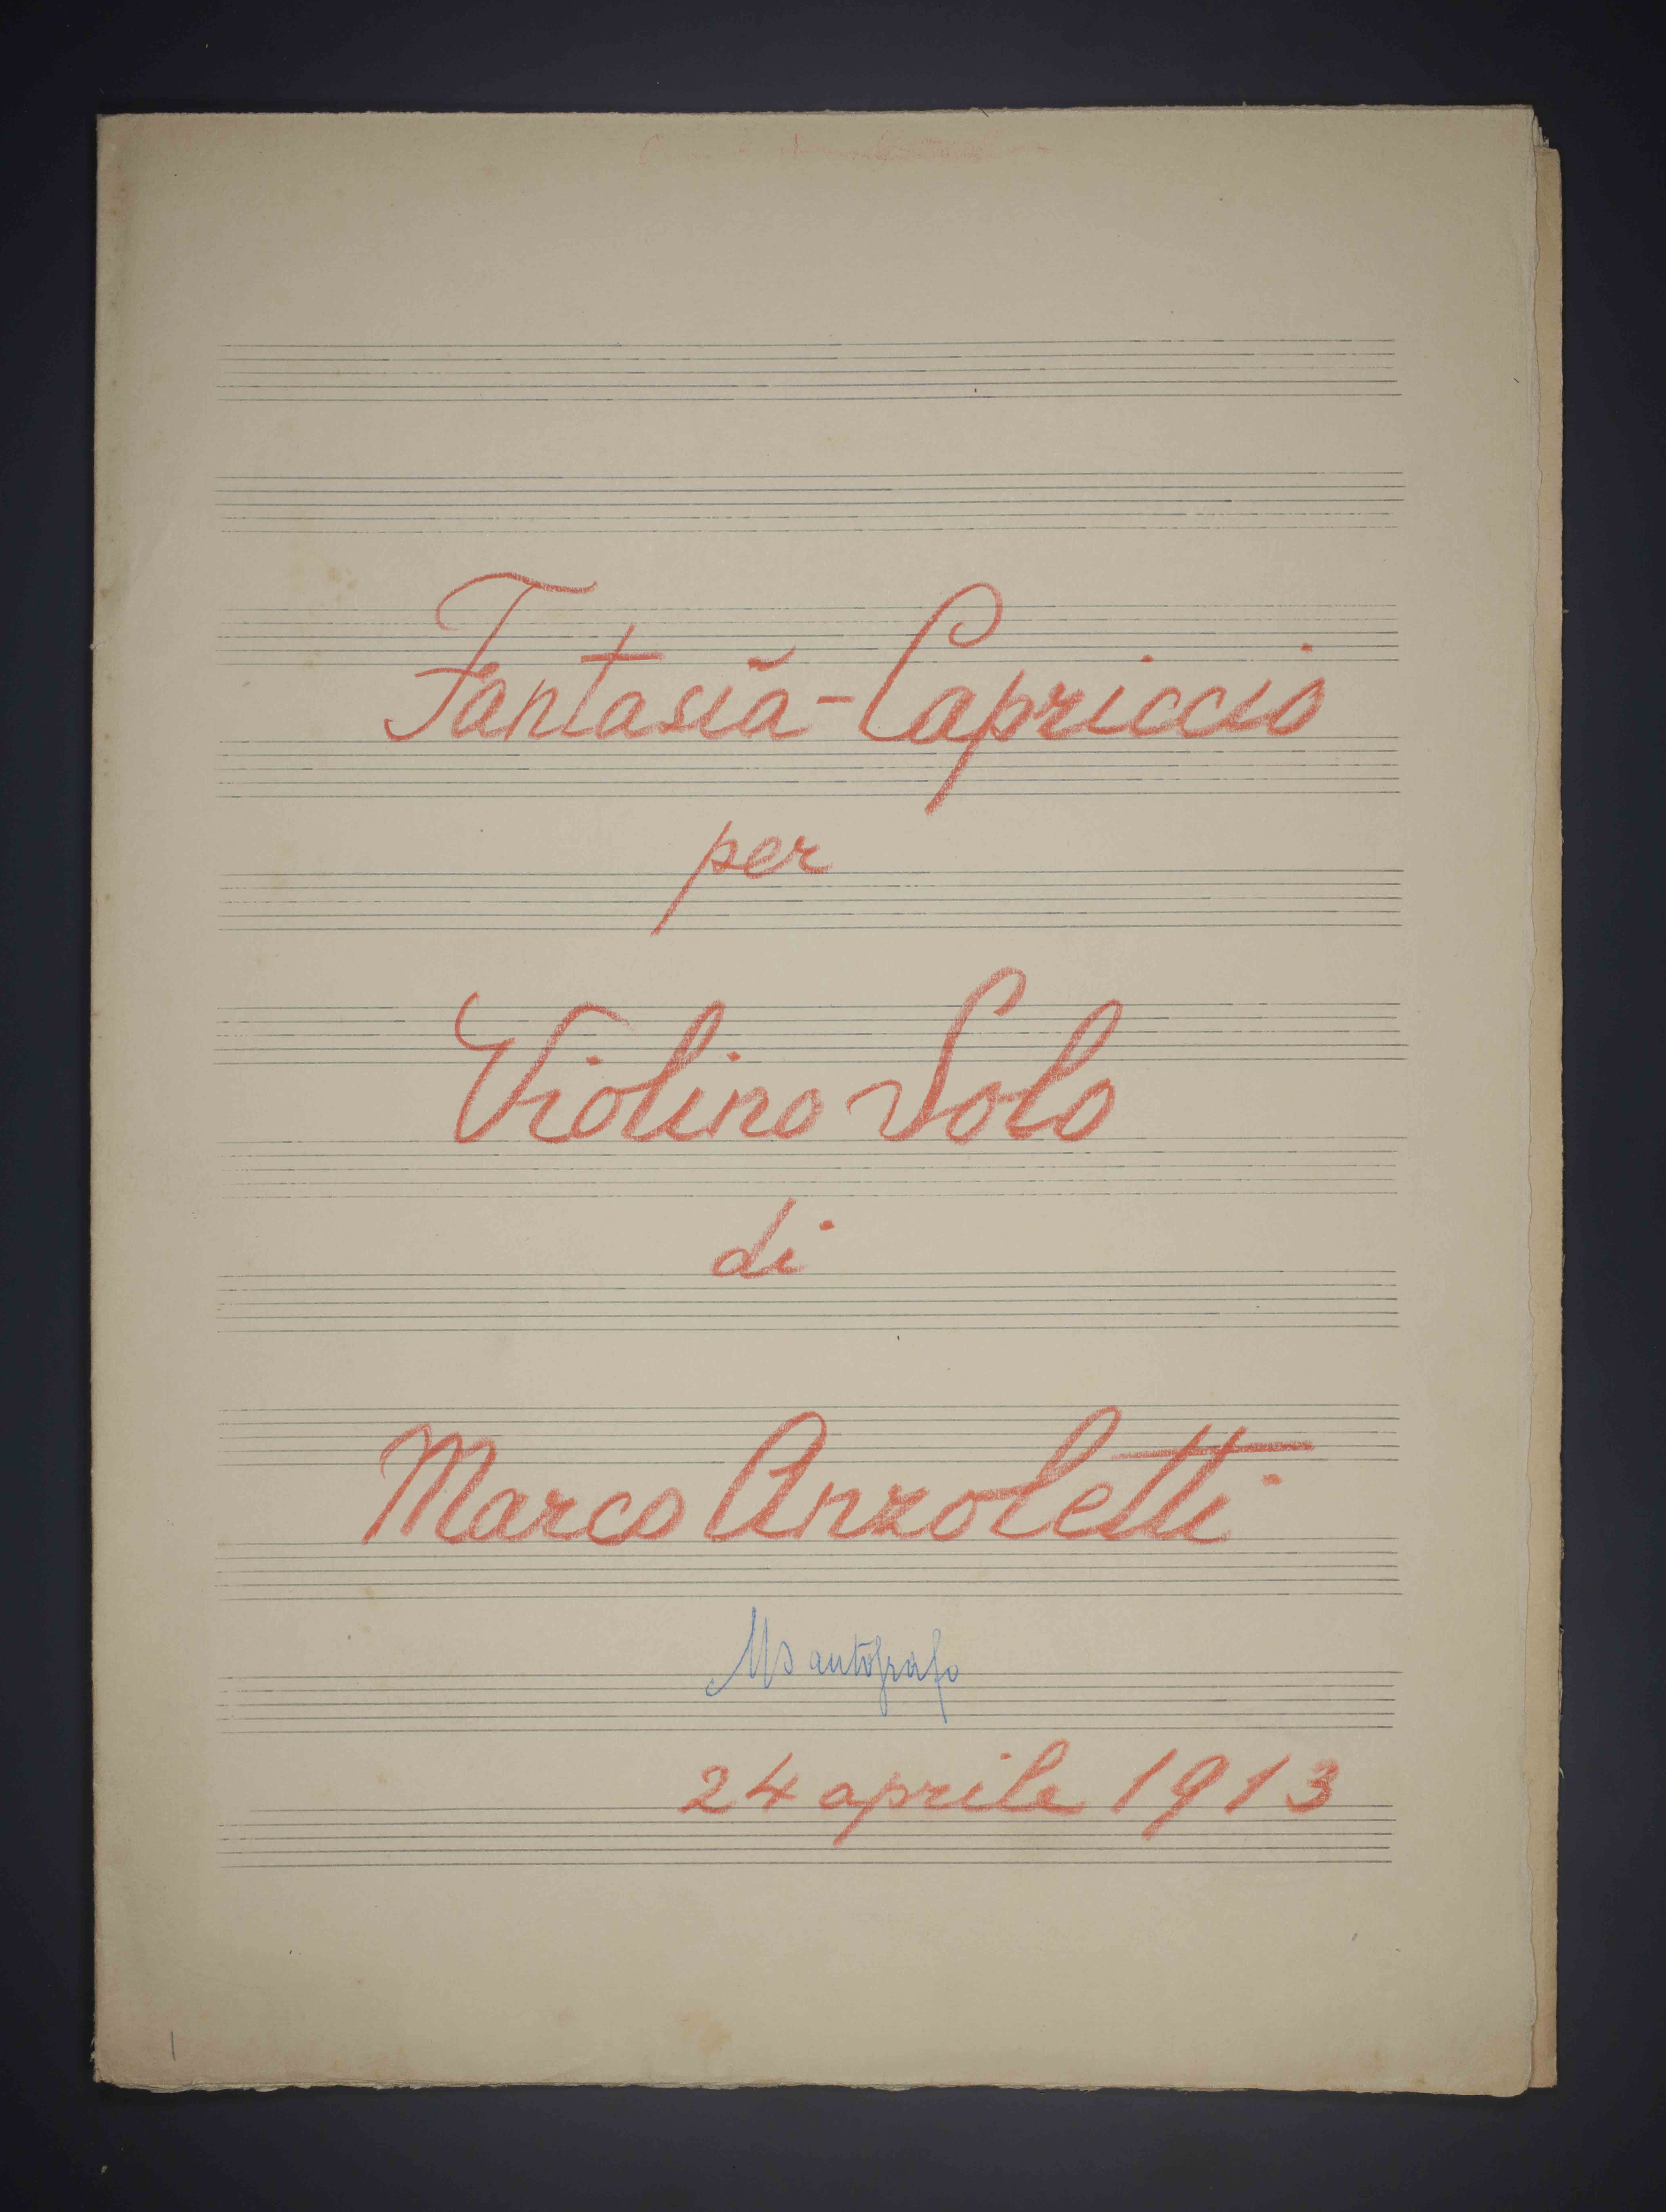 Fantasia-Capriccio
per
Violino Solo
di
Marco Anzoletti
Ms autografo
24 aprile 1913